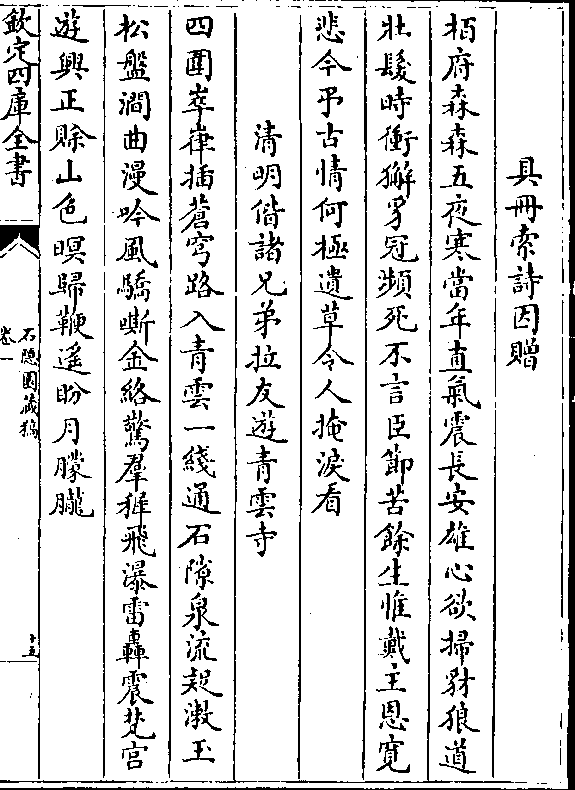 具冊索詩因贈
栢府森森五夜寒當年直氣震長安雄心欲掃豺狼道
壯髮時衝獬豸冠瀕死不言臣節苦餘生惟戴主恩寛
悲今弔古情何極遺草令人掩淚看
清明偕諸兄弟拉友遊青雲寺
四圍崒嵂插蒼穹路入青雲一綫通石隙泉流起漱玉
松盤澗曲漫吟風驕嘶金絡驚羣雅飛瀑雷轟震梵宫
遊興正賒山色暝歸鞭遥盼月朦朧
欽定四庫全書
石隱園藏稿
卷一
十五